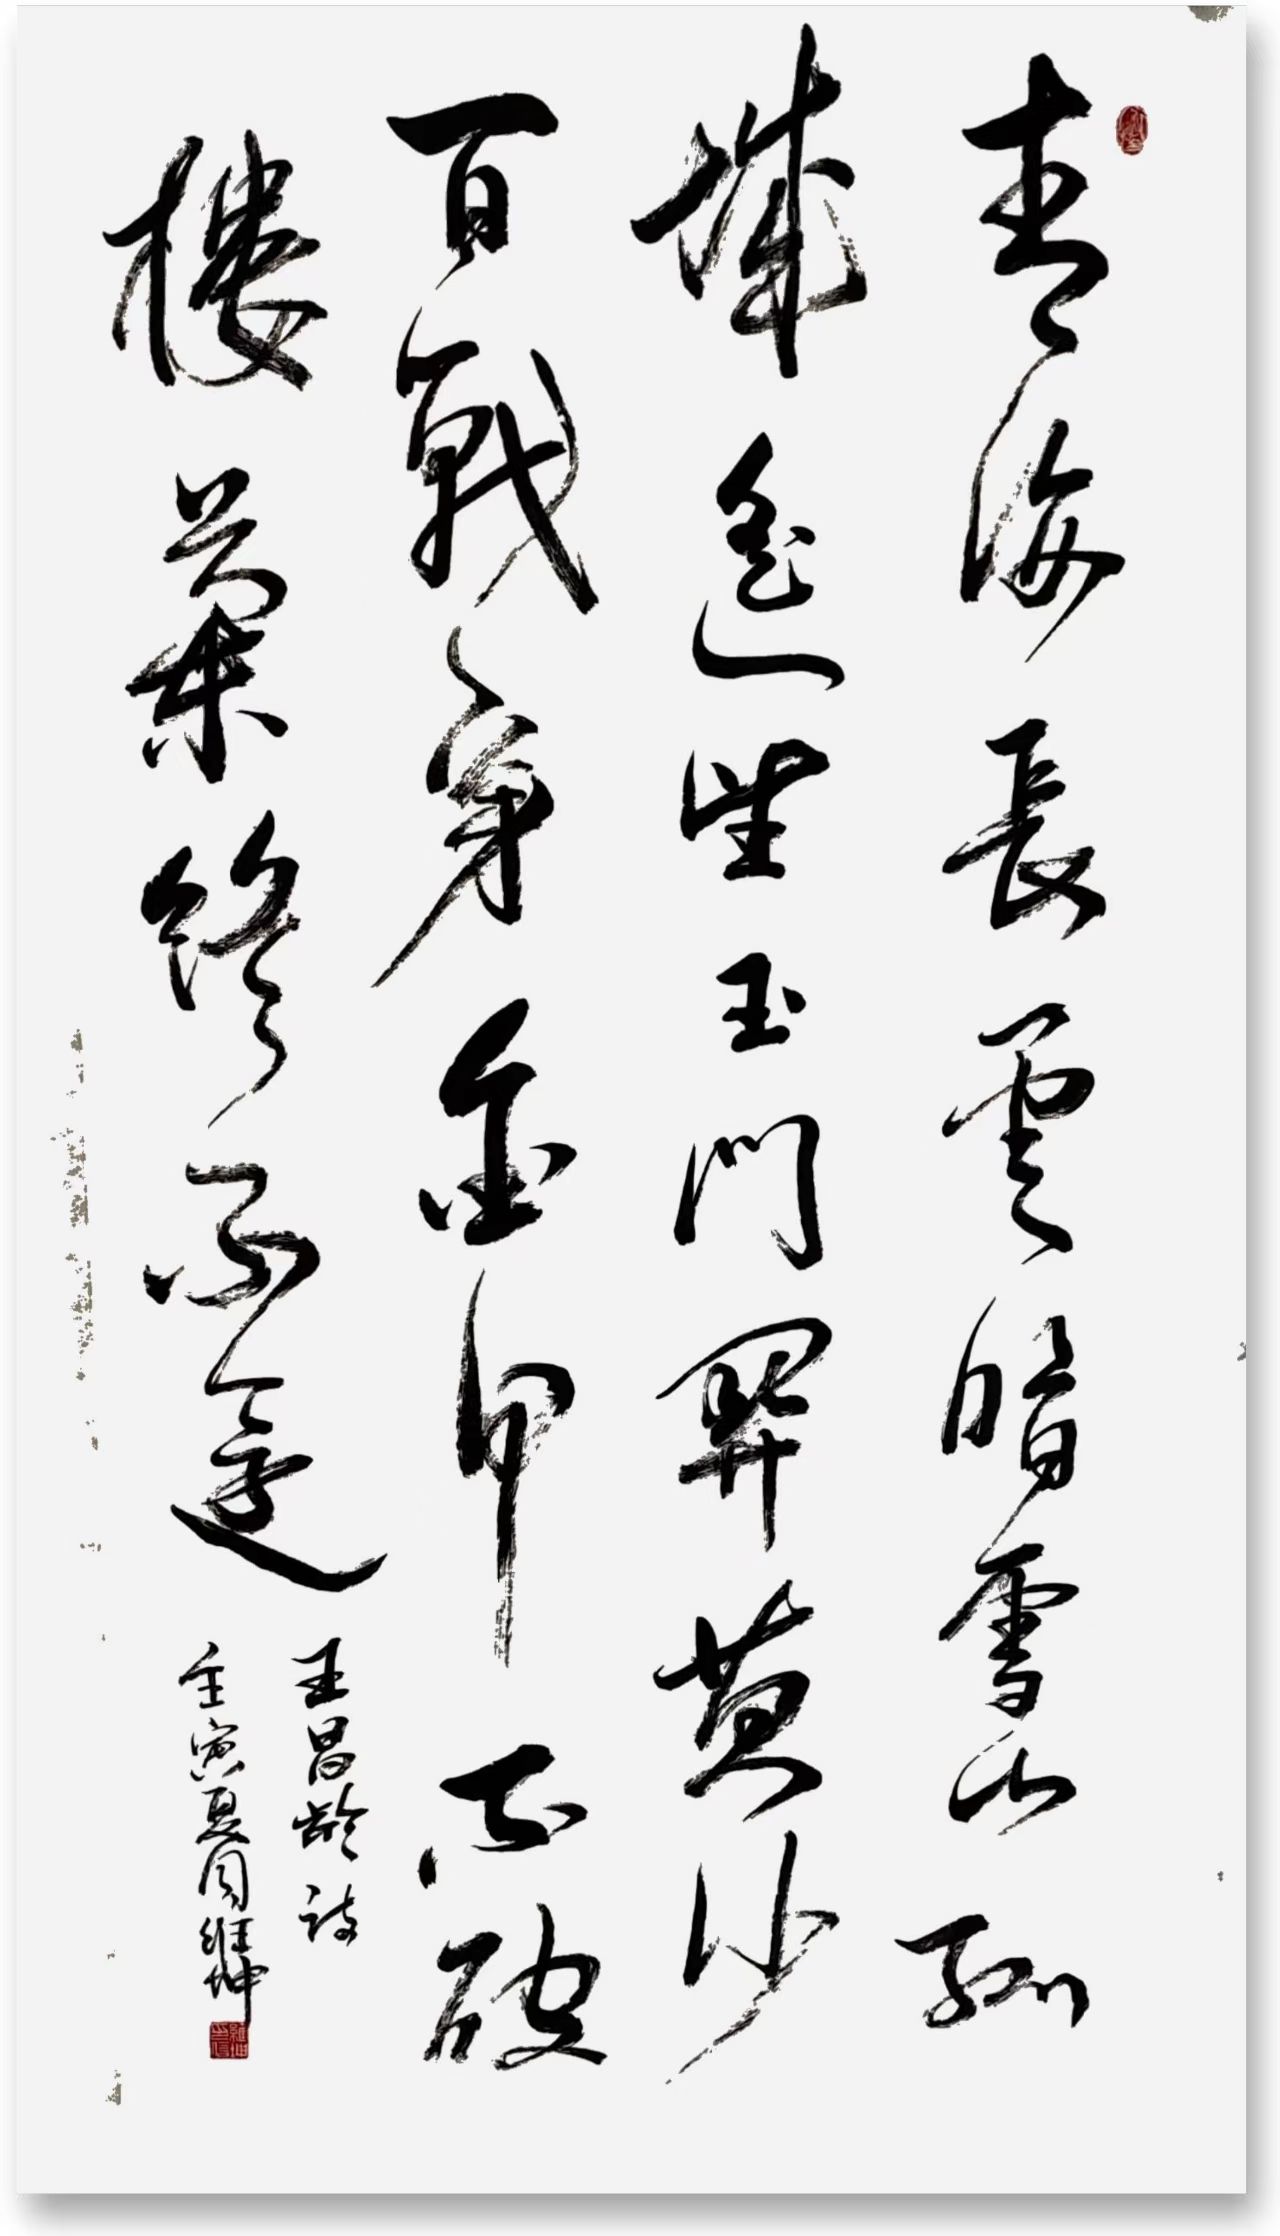 青海長雲暗雪山孤
城遙望玉門關黄沙
百戰穿金甲不破
樓蘭終不還
王昌齡詩
壬寅夏周維坤